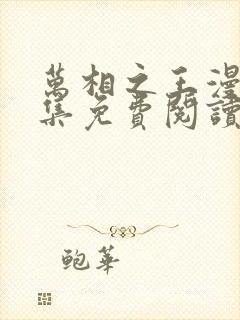 萬相之王漫
集免費閱讀
鲍華